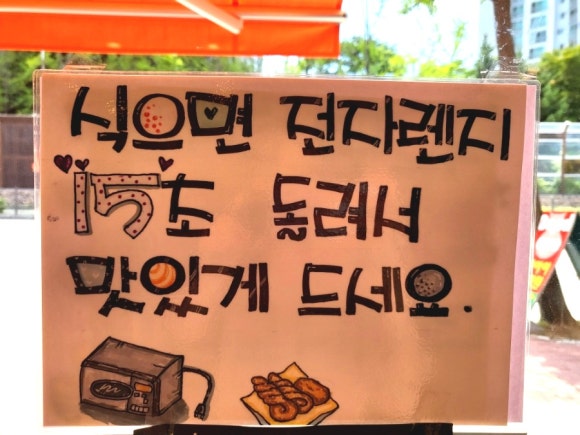 식으면 전자렌지
15초 돌려서
맛있게 드세요.